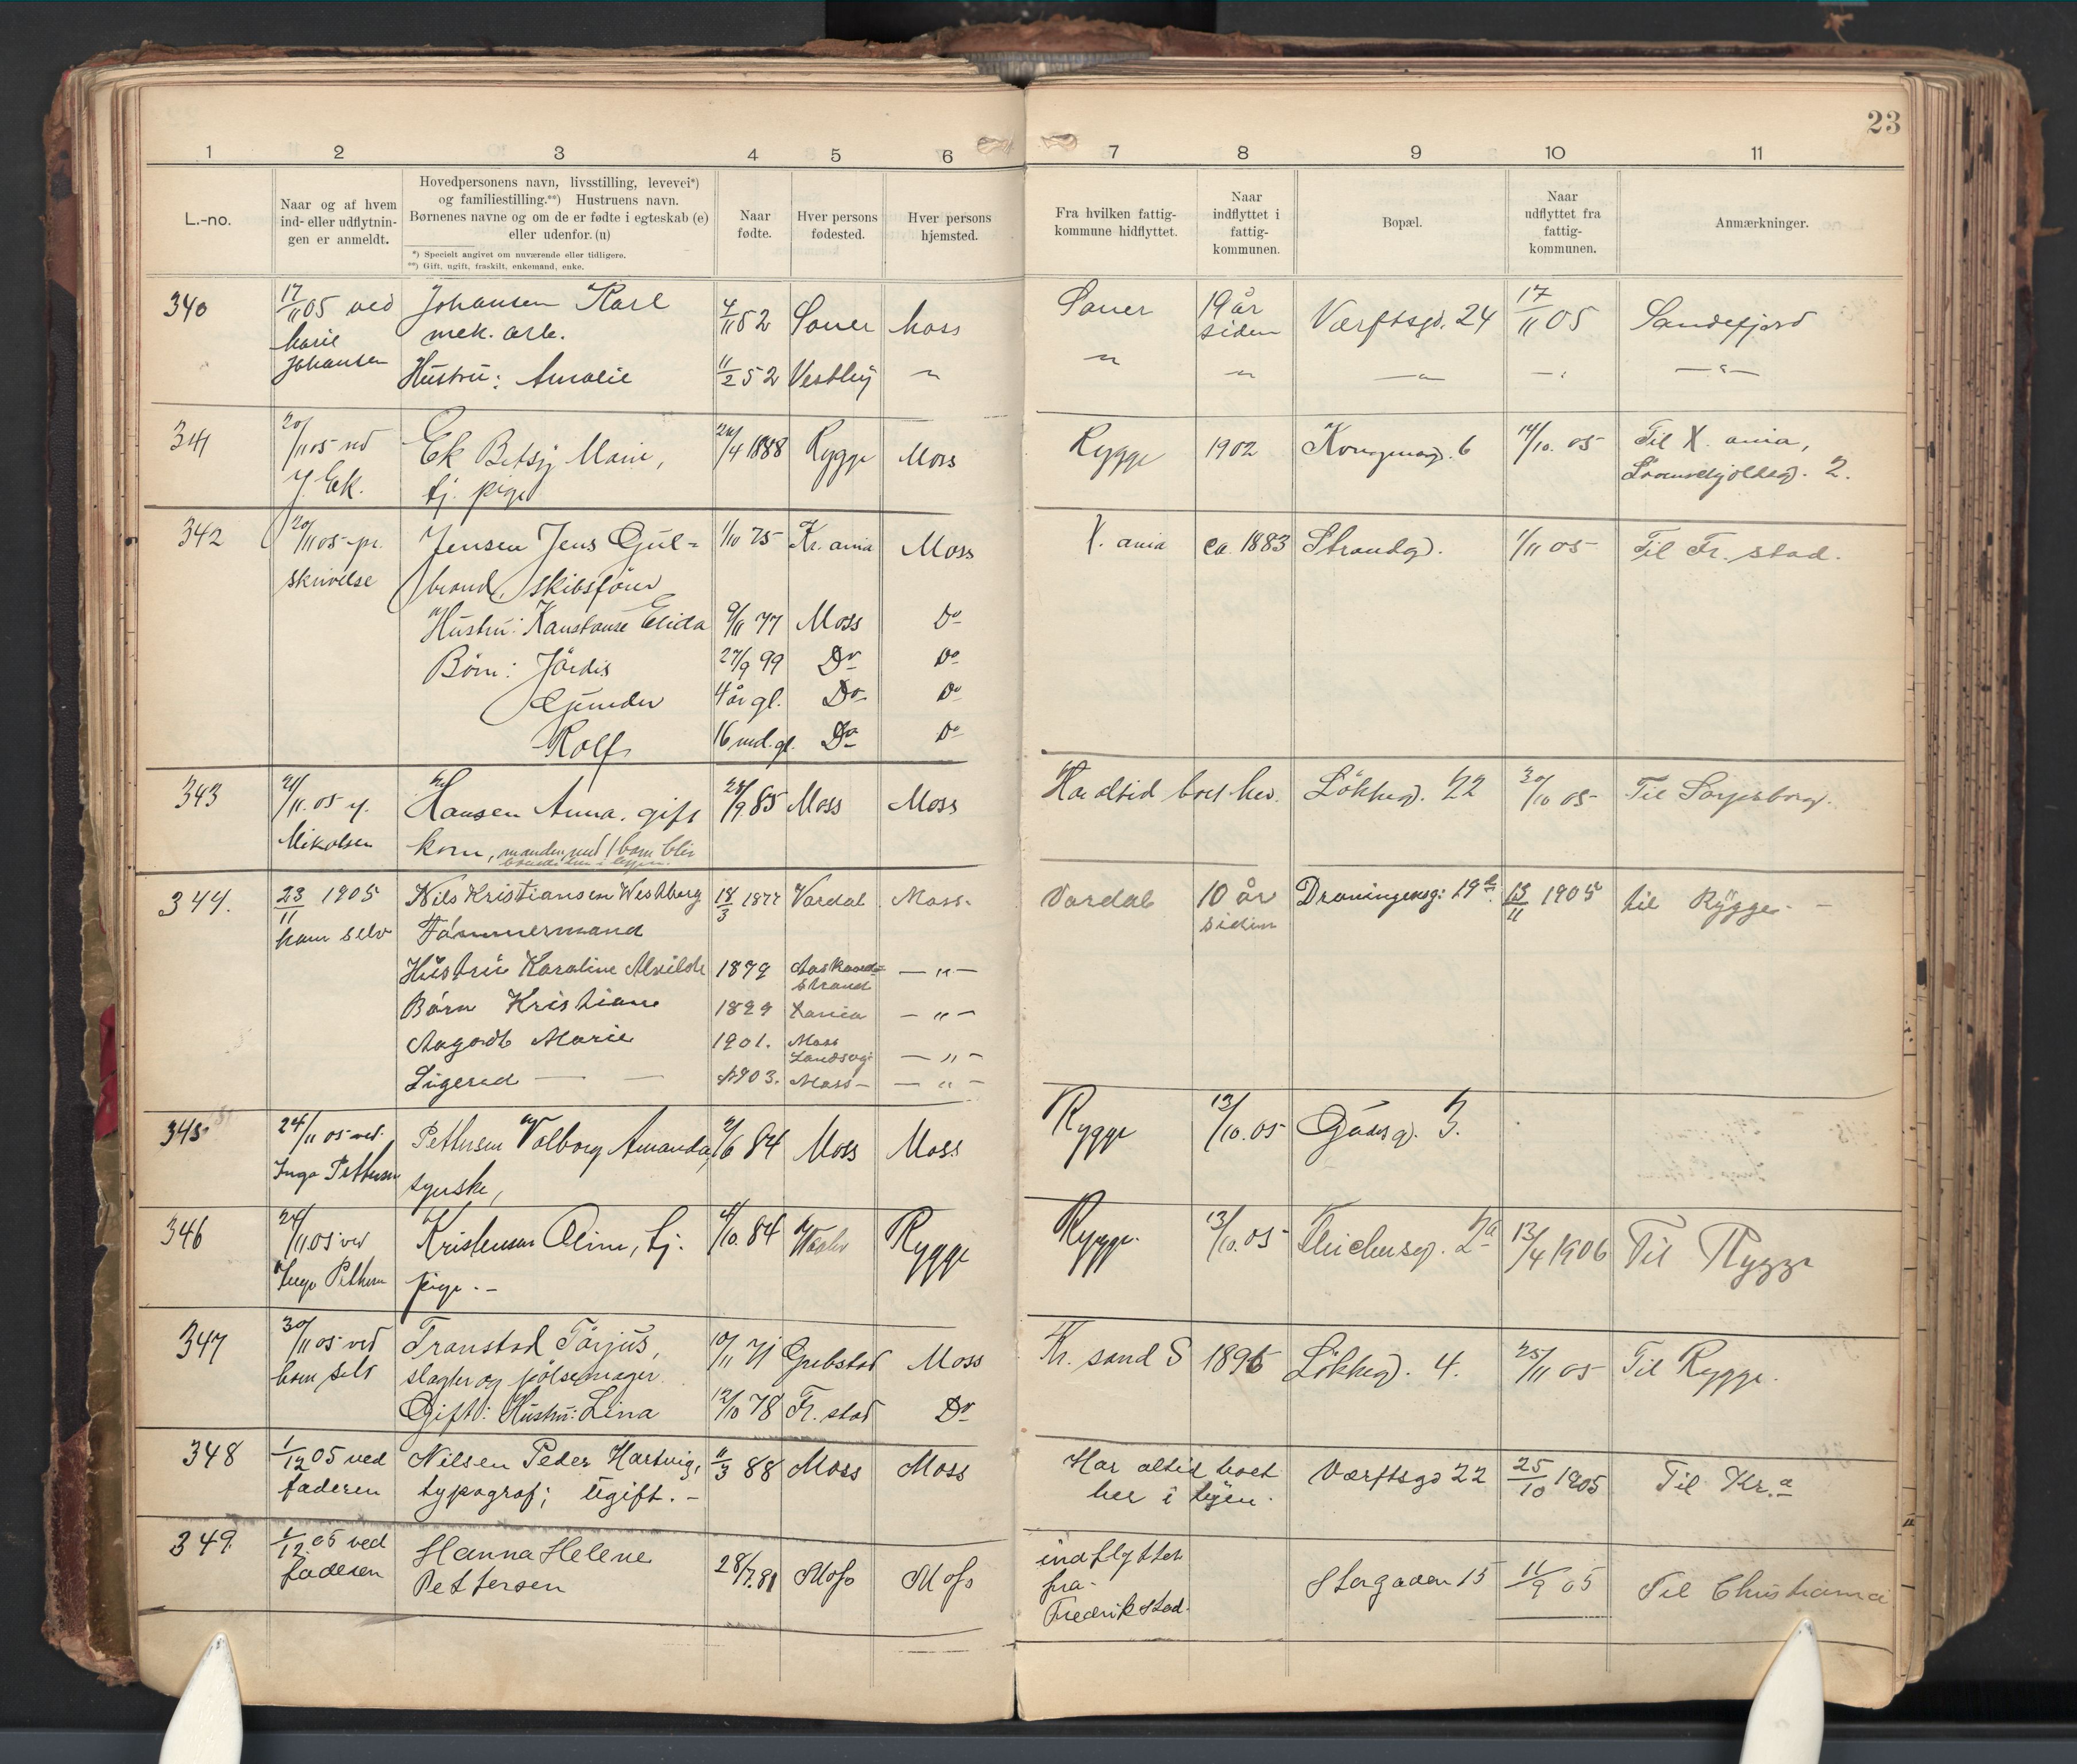 23
1 2 3 4 5 6 7 8 9 10 11
L.-no.
Naar og af hvem
ind- eller udflytnin-
gen er anmeldt.
Hovedpersonens navn, livsstilling, levevei*)
og familiestilling.**) Hustruens navn.
Børnenes navne og om de er fødte i egteskab (e)
eller udenfor. (u)
*) Specielt angivet om nuværende eller tidligere.
**) Gift, ugift, fraskilt, enkemand, enke.
Naar
fødte.
Hver persons
fødested.
Hver persons
hjemsted.
Fra hvilken fattig-
kommune hidflyttet.
Naar
indflyttet i
fattig-
kommunen.
Bopæl.
Naar
udflyttet fra
fattig-
kommunen.
Anmærkninger.
340 17/11 05 ved Johansen Karl 4/11 52 Soner Moss Soner 19 år Værftsgd. 24 17/11 05 Sandefjord
Marie mek. arb. siden
Johansen Hustru: Amalie 11/2 52 Vestby " " " " " "
341 20/11 05 ved Ek Betsy Marie, 24/4 1888 Rygge Moss Rygge 1902 Kongensgd. 6 14/10. 05 Til X. ania,
J. Ek. tj. pige 2.
342 20/11 05 pr. Jensen Jens Gul- 1/10 75 Kr. ania Moss X. ania ca. 1883 Strandgd. 1/11 05 Til Fr. stad.
skrivelse brand, skibsfører
Hustru: Konstanse Elida 9/11 77 Moss Do
Børn: Jördis 27/9 99 Do Do
Gunder 4 år gl. Do Do
Rolf 16 md. gl. Do Do
343 21/11. 05 v. Hansen Anna, gift 28/9. 85 Moss Moss Har altid boet her. Løkkegd. 22 30/10 05 Til Sarpsborg.
Mikalsen kone, manden med barn blir
boende her i byen.
344. 23/11 1905 Nils Kristiansen Westberg 18/3 1877 Vardal Moss. Vardal 10 år Droningensg: 19b. 13/11 1905 til Rygge. -
ham selv Tømmermand siden
Hustru Karoline Alvilde 1879 Aaskaard- — " —
strand
Børn Kristiane 1899 Xania — " —
Aagodt Marie 1901. Moss
Landsogn — " —
Sigurd — — 1903. Moss — — " —
345 24/11 05 ved Pettersen Valborg Amanda, 2/6 84 Moss Moss Rygge 13/10. 05 Gåsegd. 3.
Inga Pettersen syerske,
346 24/11 05 ved Kristensen Oline, tj. 4/10. 84 Vaaler Rygge Rygge. 13/10. 05 Thichensgd. 2a 13/4 1906 Til Rygge
Inga Pettersen pige. -
347 30/11 05 ved Transtad Tarjus, 10/11 71 Grebstad Moss Kr. sand S 1895 Løkkegd. 4. 25/11 05 Til Rygge.
ham selv slagter og pølsemager.
Gift: Hustru: Lina 12/10 78 Fr. stad Do
348 1/12 05 ved Nilsen Peder Hartvig, 11/3 88 Moss Moss Har altid boet Værftsgd 22 25/10 1905 Til Kr.a
faderen typograf; ugift. - her i byen.
349. 1/12 05 ved Hanna Helene 28/7. 81 Moss Moss indflyttet Storgaden 15 11/9 05 Til Christiania
faderen Pettersen fra
Fredrikstad.